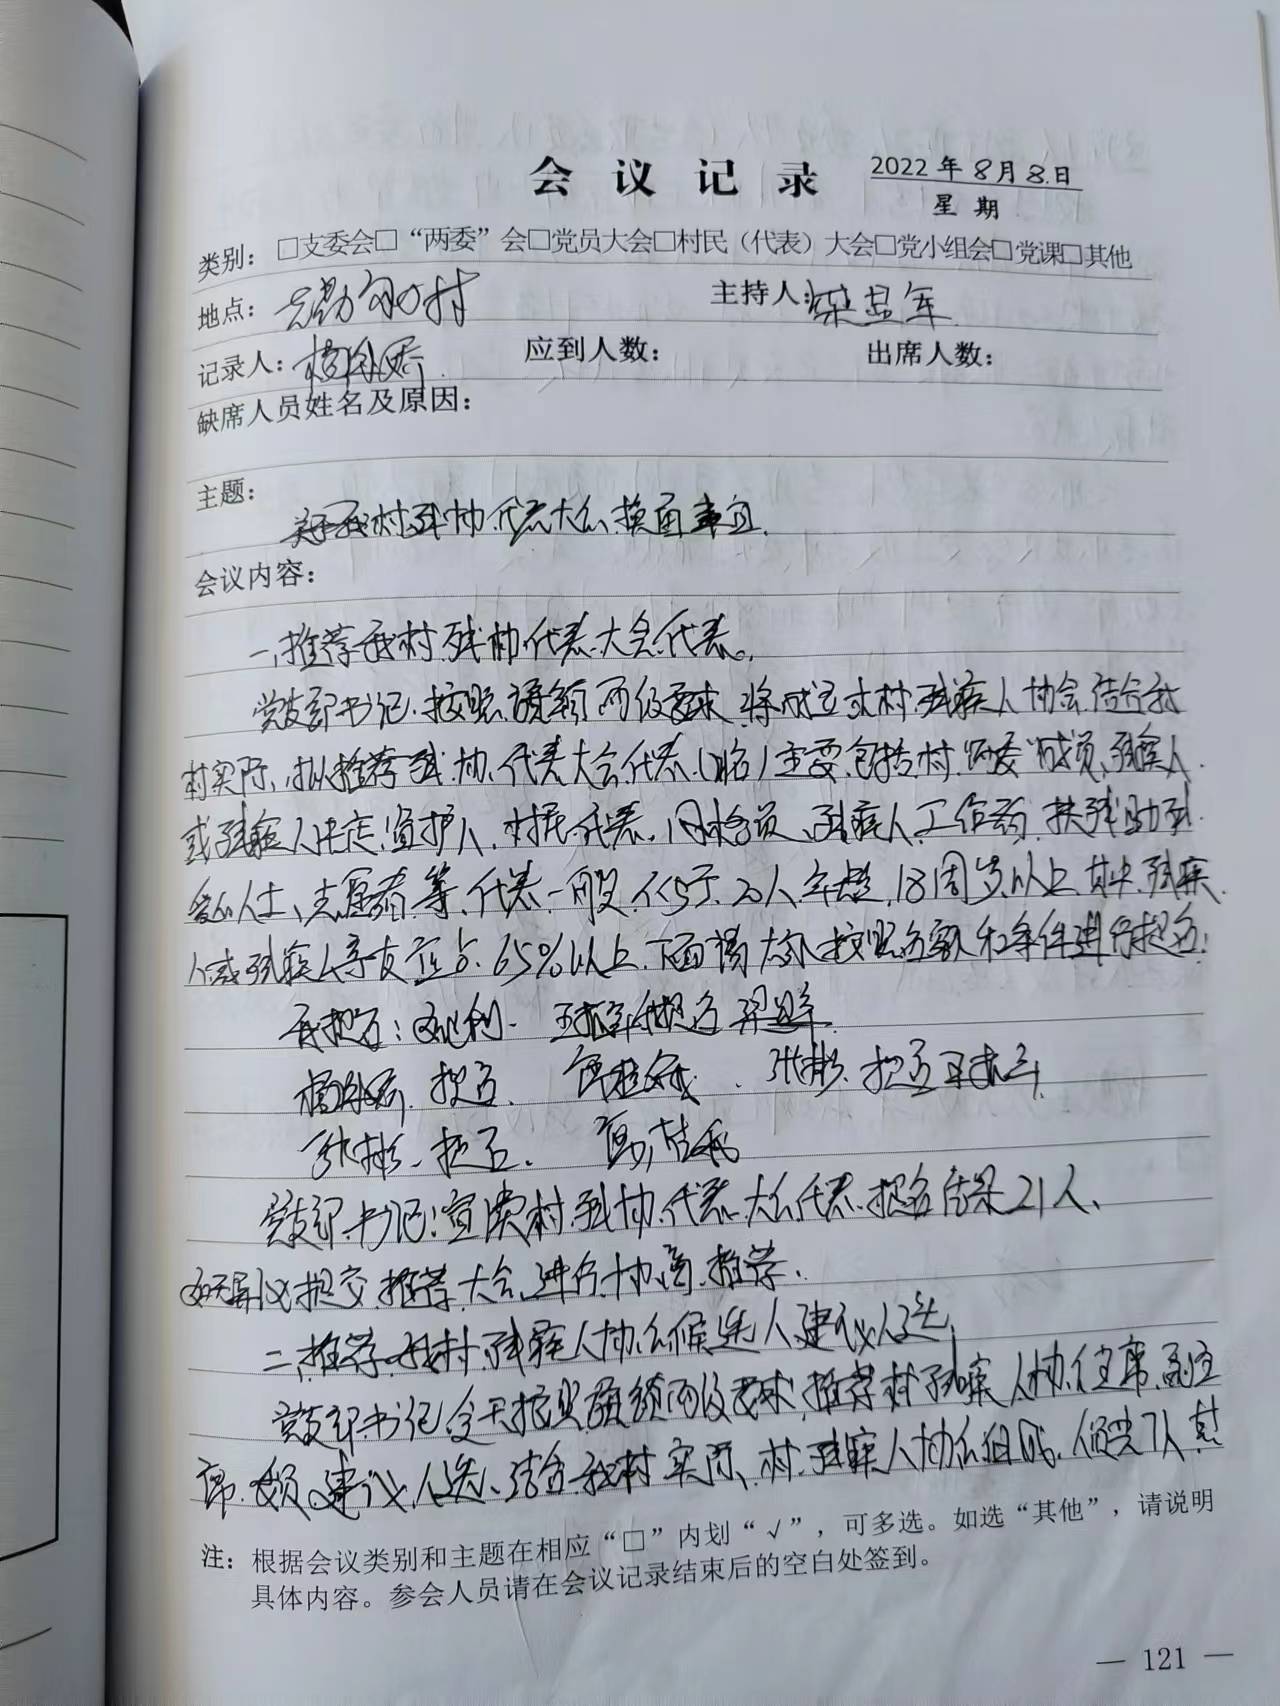 会议记录 2022年8月8日
星期
类别：□支委会□“两委”会□党员大会□村民（代表）大会□党小组会□党课□其他
地点： 村 主持人： 军
记录人： 应到人数： 出席人数：
缺席人员姓名及原因：
主题：
村残协代表大会换届事宜.
会议内容：
一、推荐我村残协代表大会代表。
党支部书记：按照 两级要求，将成立本村残疾人协会，结合我
村实际，拟推荐残协代表大会代表（ 名）主要包括村“两委”成员、残疾人
或残疾人法定监护人、村民代表、网格员、残疾人工作者、扶残助残
爱心人士、志愿者等，代表一般不少于20人，年龄18周岁以上，其中残疾
人或残疾人亲友应占65%以上，下面请大家按照名额和条件进行提名：
我提名： 提名
提名 提名
提名
党支部书记：宣读村残协代表大会代表提名结果21人、
如无异议提交推荐大会进行协商推荐。
二、推荐我村残疾人协会候选人建议人选
党支部书记：今天按照 两级要求，推荐村残疾人协会主席、副主
席、委员建议人选、结合我村实际、村残疾人协会组成 7人 其
注：根据会议类别和主题在相应“□”内划“√”，可多选。如选“其他”，请说明
具体内容。参会人员请在会议记录结束后的空白处签到。
— 121 —